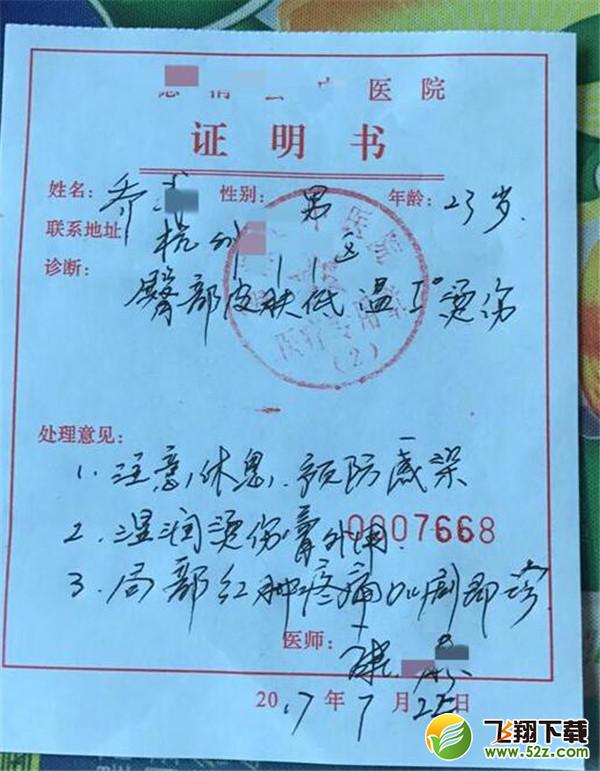 医院
证明书
姓名: 乔 性别: 男 年龄: 23岁.
联系地址 杭州
诊断:
臀部皮肤低温I°烫伤
医疗专用章
(2)
处理意见:
1. 注意休息, 预防感染
2. 湿润烫伤膏外用.
0007668
3. 局部红肿疼痛加剧即诊
医师:
2017年7月22日
飞翔下载
www.52z.com